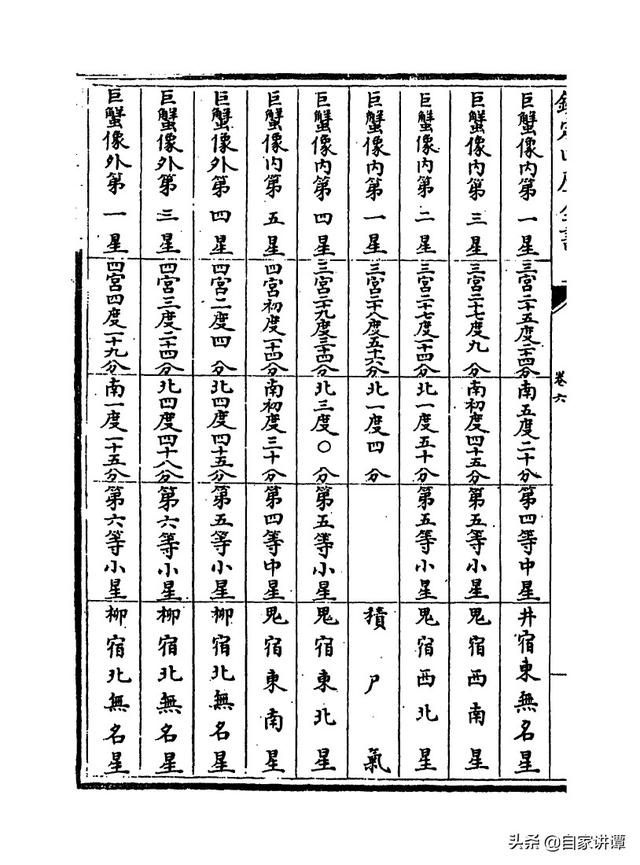 卷六
巨蟹像內第一星 三宮二十五度二十四分 南五度二十分 第四等中星 井宿東無名星
巨蟹像內第三星 三宮二十七度九分 南初度四十五分 第五等小星 鬼宿西南星
巨蟹像內第二星 三宮二十七度一十四分 北一度五十分 第五等小星 鬼宿西北星
巨蟹像內第一星 三宮二十八度五十六分 北一度四分 積尸氣
巨蟹像內第四星 三宮二十九度三十四分 北三度〇分 第五等小星 鬼宿東北星
巨蟹像內第五星 四宮初度一十四分 南初度三十分 第四等中星 鬼宿東南星
巨蟹像外第四星 四宮二度四分 北四度四十五分 第五等小星 柳宿北無名星
巨蟹像外第三星 四宮三度一十四分 北四度四十八分 第六等小星 柳宿北無名星
巨蟹像外第一星 四宮四度一十九分 南一度一十五分 第六等小星 柳宿北無名星
头条 @自家讲谭